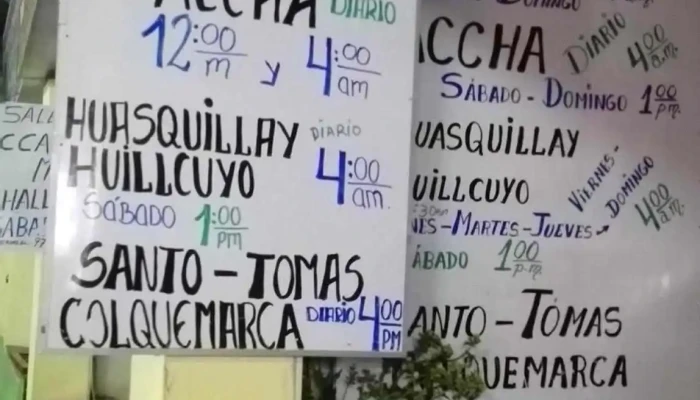 ACCHA DIARIO
12:00 m y 4:00 am
HUASQUILLAY DIARIO
HUILLCUYO 4:00 am.
SÁBADO 1:00 PM
SANTO - TOMAS
COLQUEMARCA DIARIO 4:00 PM
DOMINGO
CCHA DIARIO 4:00 a.m.
SÁBADO - DOMINGO 1:00 p.m.
UASQUILLAY
UILLCUYO VIERNES - DOMINGO 4:00 a.m.
NES-MARTES-JUEVES
ÁBADO 1:00 p.m.
ANTO - TOMAS
QUEMARCA
SAL
CCA
M
HALL
ABA